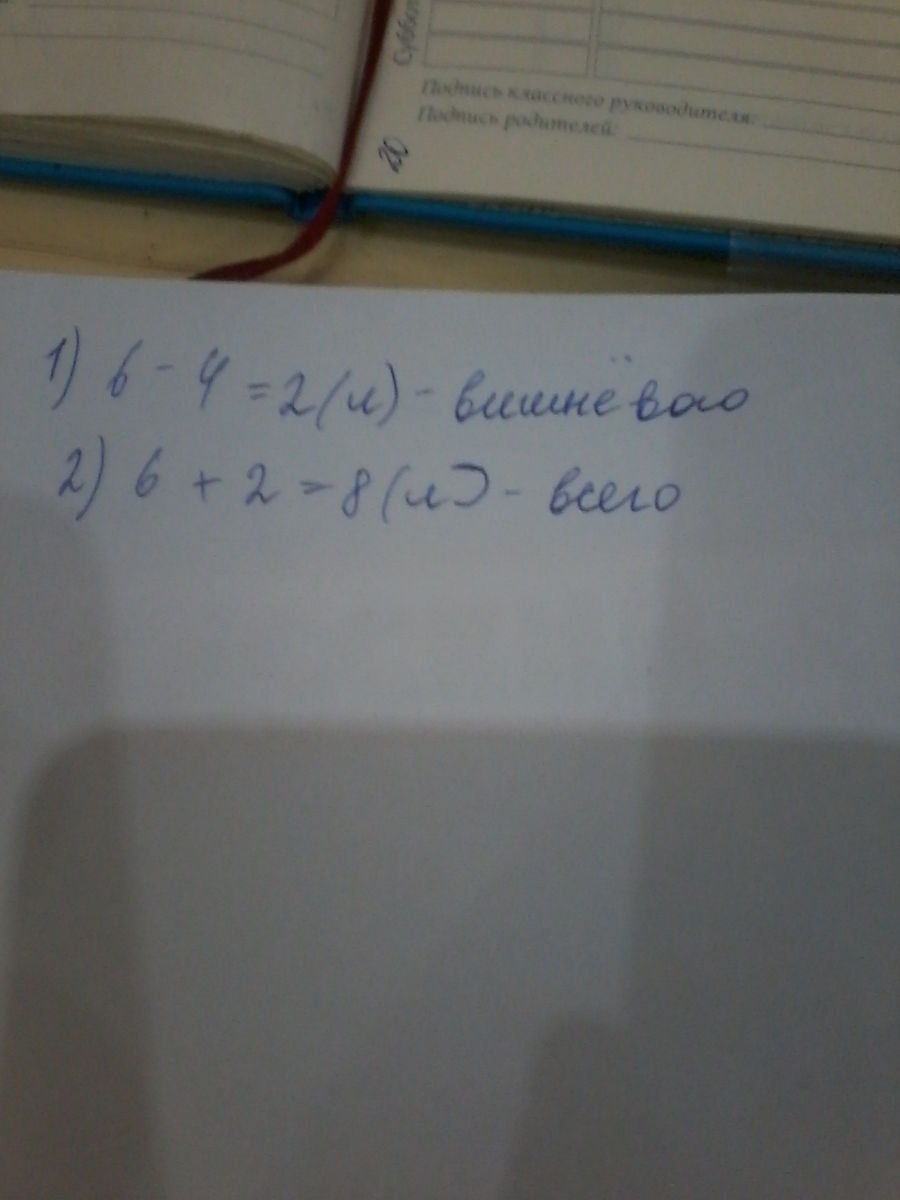 Суббот
Подпись классного руководителя:
Подпись родителей:
20
1) 6 - 4 = 2 (л) - вишнёвого
2) 6 + 2 = 8 (л) - всего